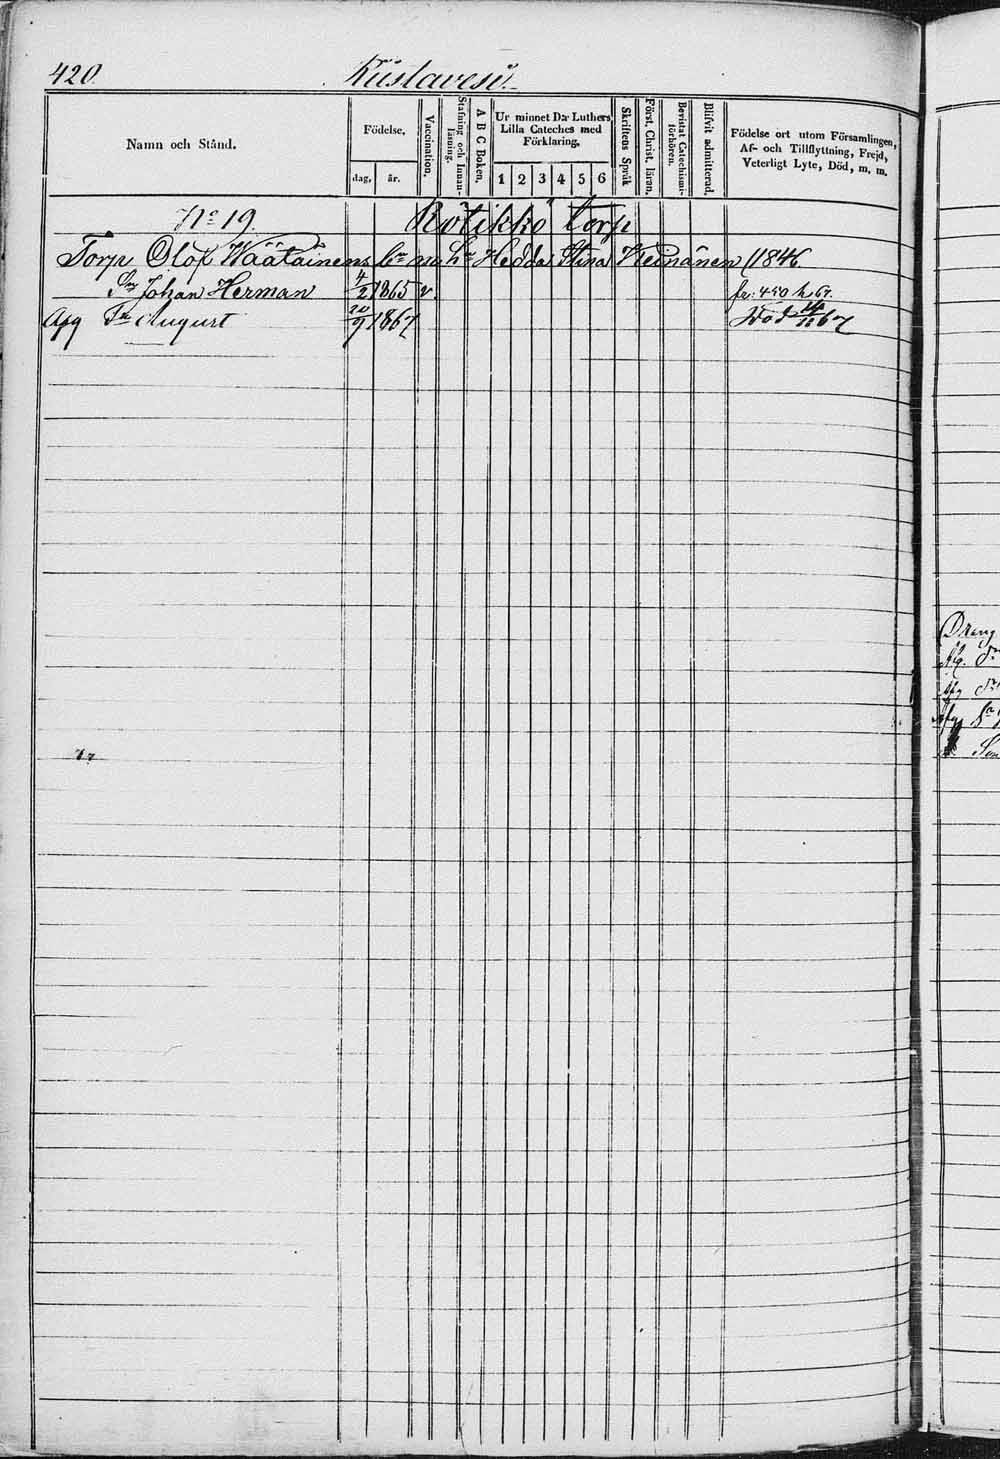 420. Kustavesi.
Namn och Stånd.
Födelse,
dag,
år.
Vaccination.
Stafning och Innan-
läsning.
A B C Boken.
Ur minnet D:r Luthers
Lilla Cateches med
Förklaring,
1 2 3 4 5 6
Skriftens Språk
Först. Christ. läran.
Bevistat Catechismi-
förhören.
Blifvit admitterad.
Födelse ort utom Församlingen,
Af- och Tillflyttning, Frejd,
Veterligt Lyte, Död, m. m.
N:o 19. Rötikkö torp
Torp Olof Wäätäinens br m h:u Hedda Stina Heinänen (1846.
Son Johan Herman 4/2 1865 v. fr: 450 h 67.
Afg S:n August 20/9 1867 Död 14/11 67
Dreng
Afg.
Afg
Afg
Son